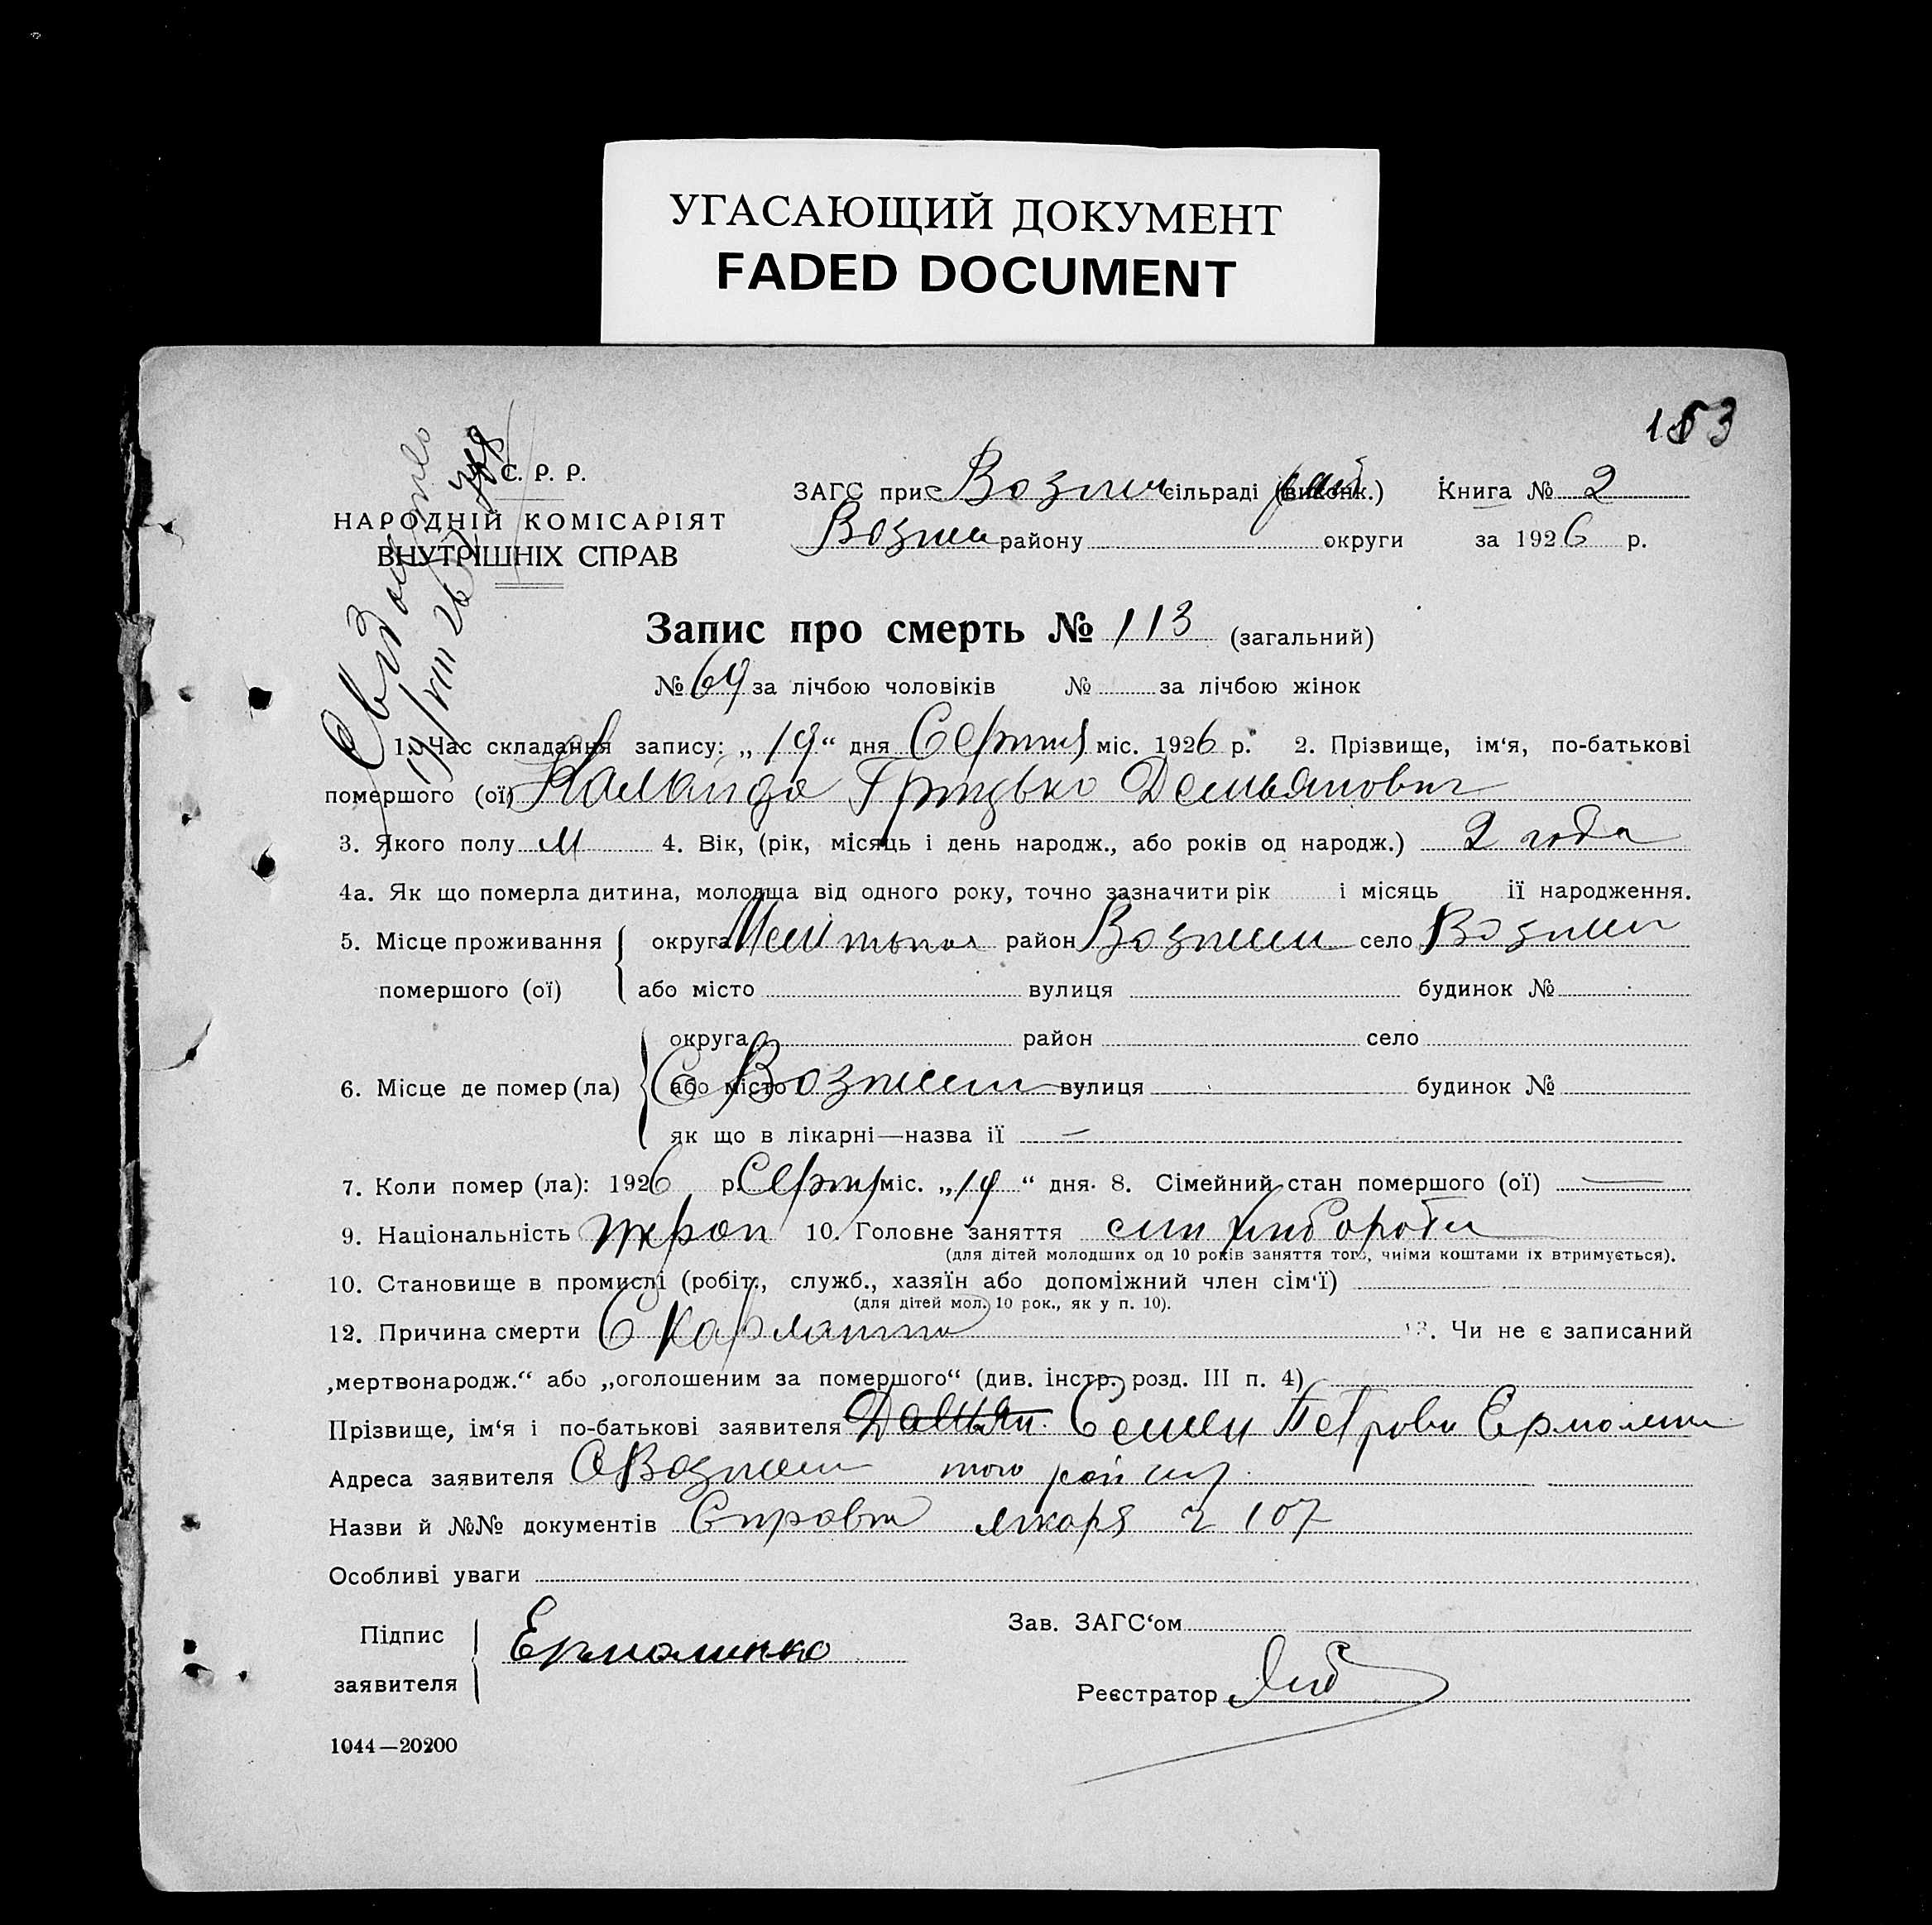 УГАСАЮЩИЙ ДОКУМЕНТ
FADED DOCUMENT
153
С. Р. Р.
НАРОДНІЙ КОМІСАРІЯТ
ВНУТРІШНІХ СПРАВ
ЗАГС при Вознесен сільраді (виконк.) Книга № 2
Вознесен району округи за 1926 р.
19/VIII 26
Запис про смерть № 113 (загальний)
№ 69 за лічбою чоловіків № за лічбою жінок
1. Час складання запису: „19“ дня Серпня міс. 1926 р. 2. Прізвище, ім'я, по-батькові
помершого (ої) Грицько Демьянович
3. Якого полу М 4. Вік, (рік, місяць і день народж., або років од народж.) 2 года
4а. Як що померла дитина, молодща від одного року, точно зазначити рік і місяць її народження.
5. Місце проживання округа район Вознесен село Вознесен
помершого (ої) або місто вулиця будинок №
округа район село
6. Місце де помер (ла) або місто С Вознесен вулиця будинок №
як що в лікарні—назва її —
7. Коли помер (ла): 1926 р. Серпня міс. „19“ дня. 8. Сімейний стан помершого (ої) —
9. Національність 10. Головне заняття син хлібороба
(для дітей молодших од 10 років заняття того, чиїми коштами їх втримується).
10. Становище в промислі (робіт., служб., хазяїн або допоміжний член сім'ї)
(для дітей мол. 10 рок., як у п. 10).
12. Причина смерти Скарлатина 13. Чи не є записаний
„мертвонародж.“ або „оголошеним за помершого“ (див. інстр. розд. III п. 4)
Прізвище, ім'я і по-батькові заявителя Демьян Семен Петрови Ермолен
Адреса заявителя С Вознесен того
Назви й №№ документів Справка лікаря ч 107
Особливі уваги
Підпис
заявителя Ермоленко
Зав. ЗАГС'ом
Реєстратор
1044—20200